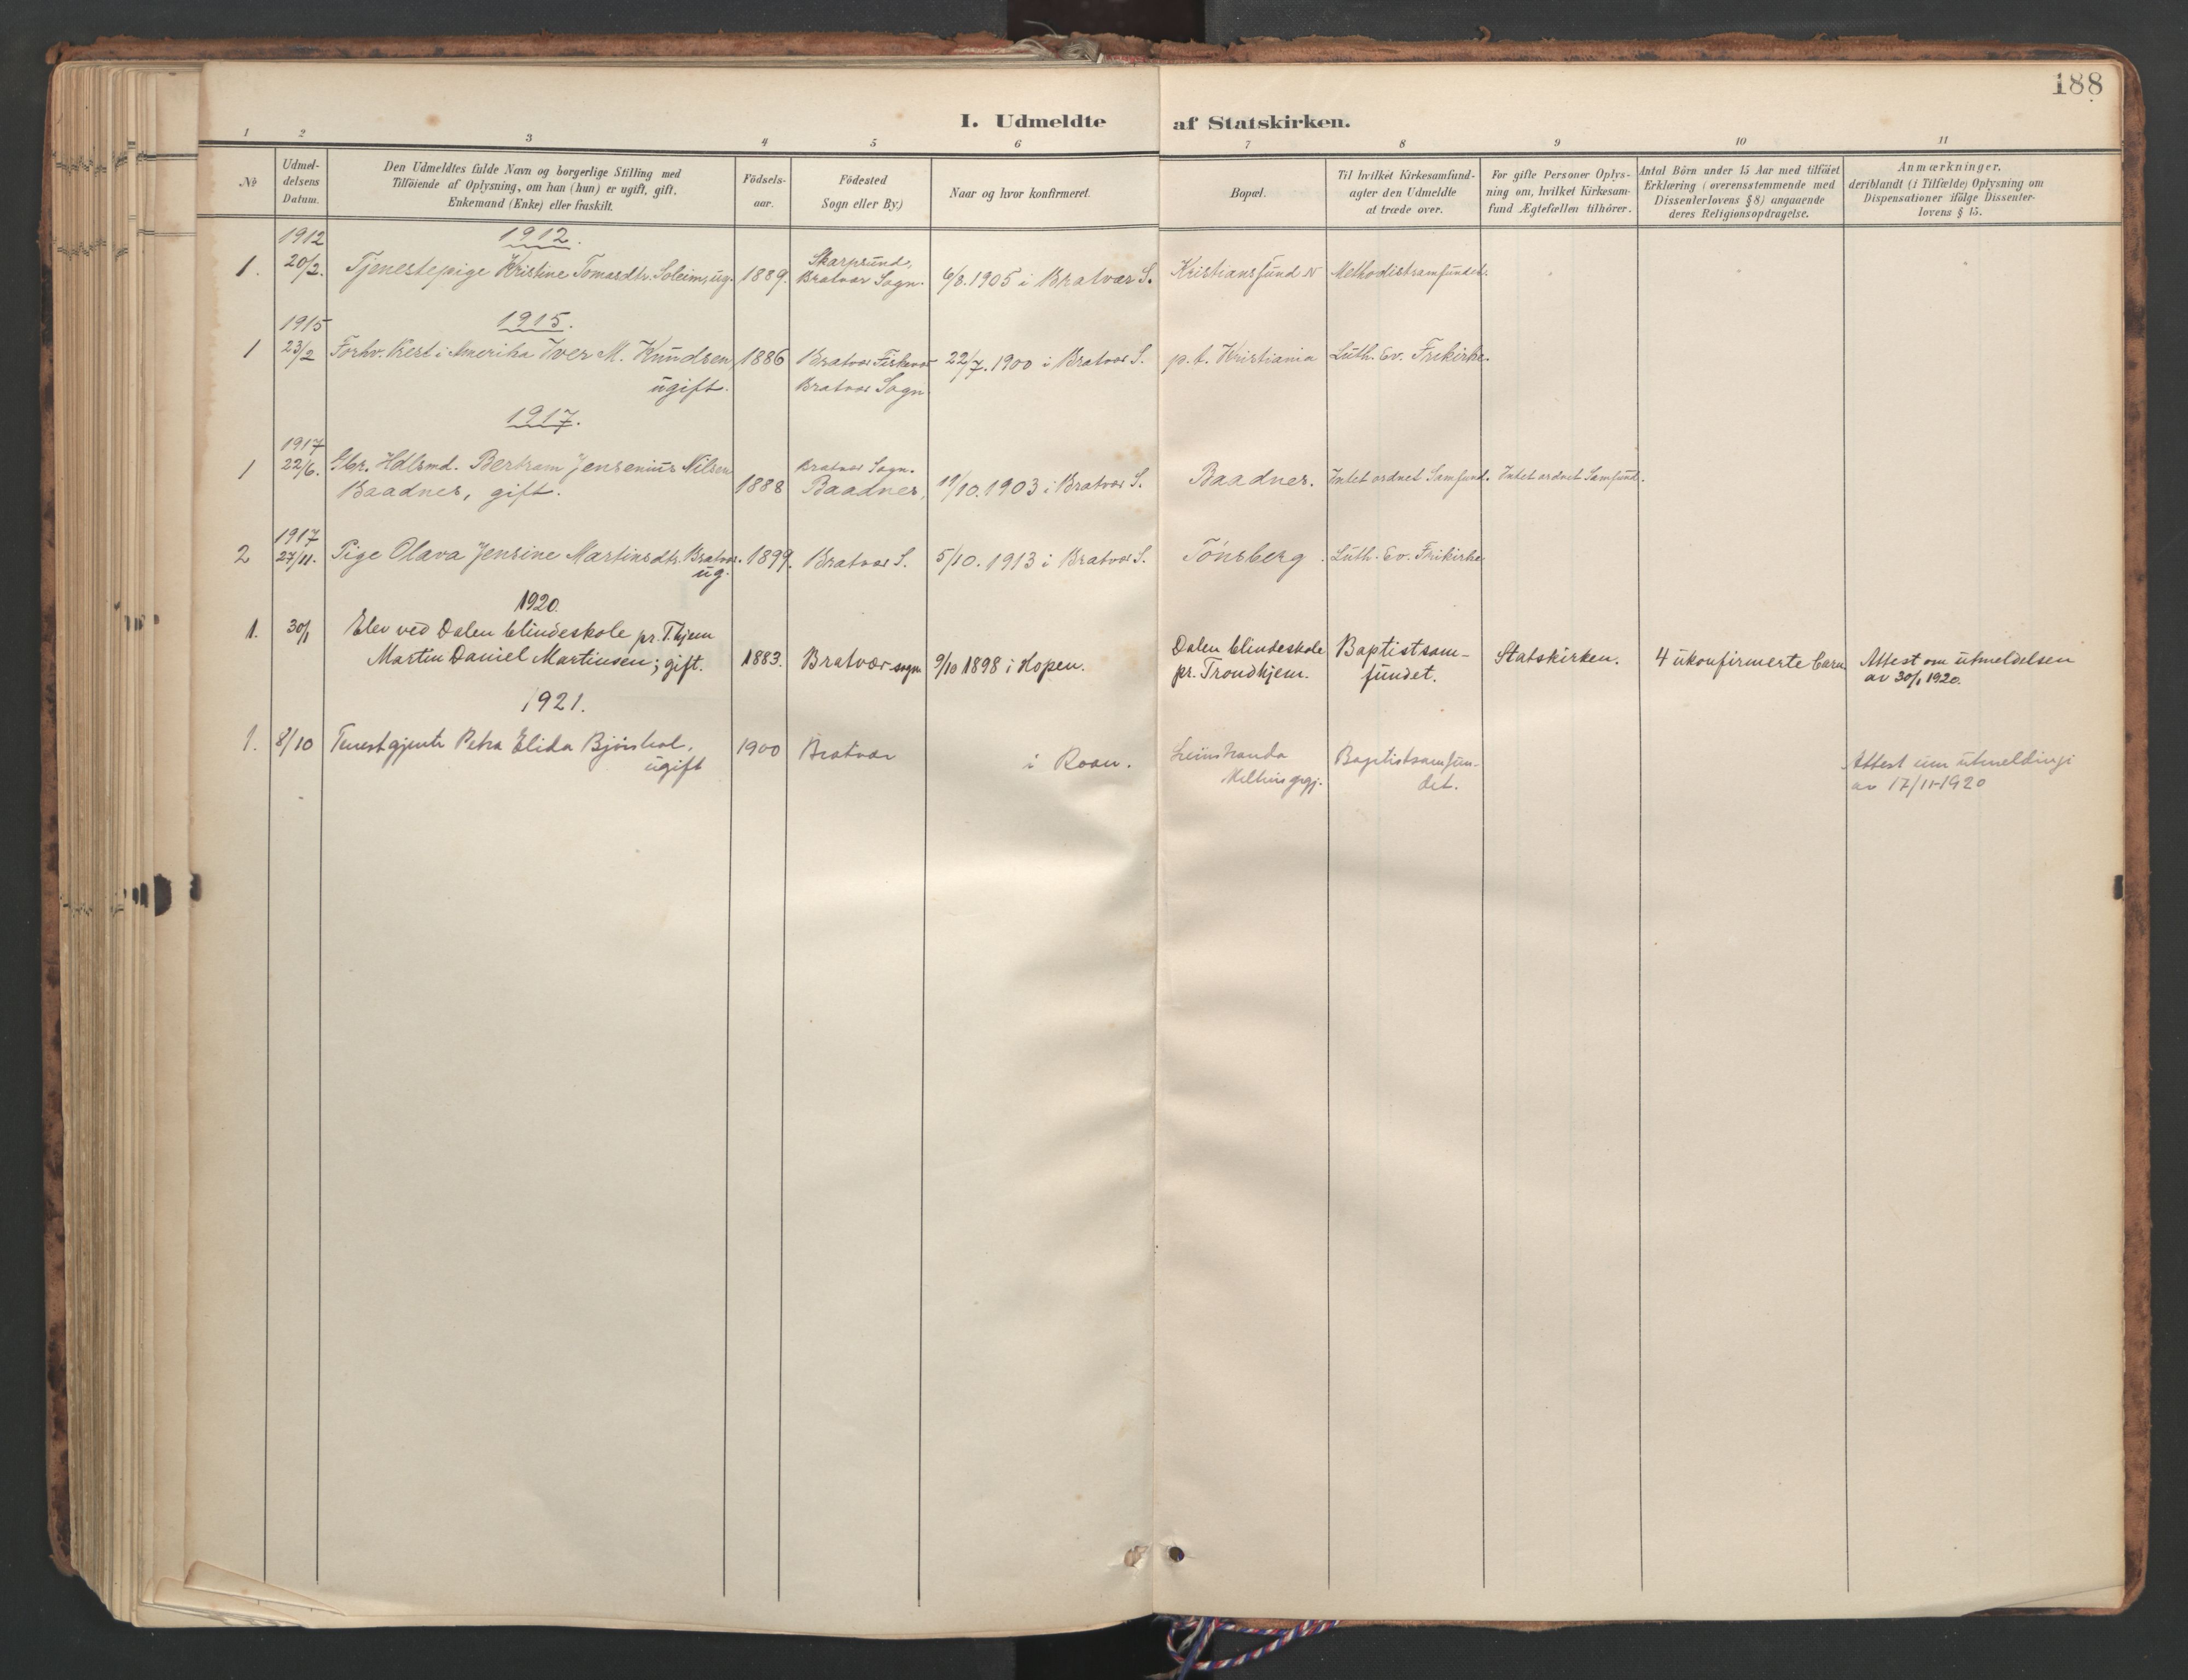 188
I. Udmeldte af Statskirken.
1 2 3 4 5 6 7 8 9 10 11
No
Udmeldelsens Datum.
Den Udmeldtes fulde Navn og borgerlige Stilling med
Tilföiende af Oplysning, om han (hun) er ugift, gift,
Enkemand (Enke) eller fraskilt.
Födsels-
aar.
Födested
Sogn eller By.)
Naar og hvor konfirmeret.
Bopæl.
Til hvilket Kirkesamfund-
agter den Udmeldte
at træde over.
For gifte Personer Oplys-
ning om, hvilket Kirkesam-
fund Ægtefællen tilhörer.
Antal Börn under 15 Aar med tilföiet
Erklæring (overensstemmende med
Dissenterlovens § 8) angaaende
deres Religionsopdragelse.
Anmærkninger,
deriblandt (i Tilfælde) Oplysning om
Dispensationer ifölge Dissenter-
lovens § 15.
1912 1912.
1. 20/2. Tjenestepige Kristine Tomasdtr. Soleim, ug. 1889. Skarpsund, 6/8. 1905 i Bratvær S. Kristiansund N Methodistsamfundet.
Bratvær Sogn.
1915 1915.
1 23/2 Forhv. Prest i Amerika Iver M. Knudsen, 1886 Bratvær Fiskevær 22/7. 1900 i Bratvær S. p.t. Kristiania Luth. Ev. Frikirke.
ugift. Bratvær Sogn
1917.
1917
1 22/6. Gbr. Hdlsmd. Bertram Jensenius Nilsen Bratvær Sogn.
Baadnes, gift. 1888 Baadnes, 11/10. 1903 i Bratvær S. Baadnes. Intet ordnet Samfund. Intet ordnet Samfund.
1917
2 27/11. Pige Olava Jensine Martinsdtr. Bratvær. 1899. Bratvær S. 5/10. 1913 i Bratvær S. Tönsberg. Luth. Ev. Frikirke
ug.
1920.
1. 30/1 Elev ved Dalen blindeskole pr. T.hjem
Martin Daniel Martinsen; gift. 1883. Bratvær sogn 9/10 1898 i Hopen. Dalen blindeskole Baptistsam- Statskirken. 4 ukonfirmerte barn Attest om utmeldelsen
pr. Trondhjem. fundet. av 30/1 1920.
1921.
1. 8/10 Tenestgjente Petra Elida Bjørshol, 1900 Bratvær i Roan. Leinstranda Baptistsamfun- Attest um utmeldingi
ugift Melhus prgj. det. av 17/11-1920